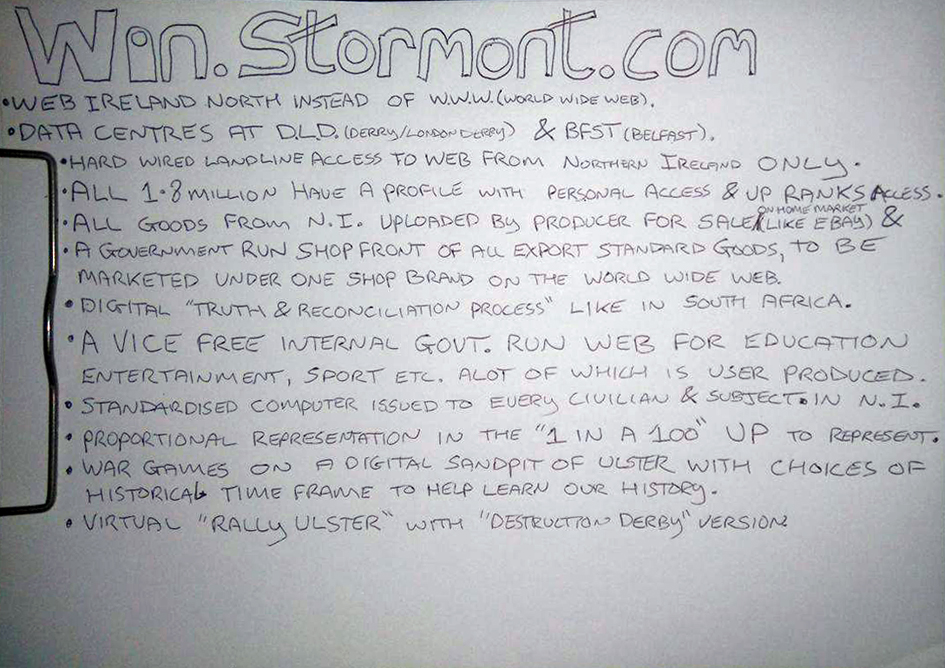 Win.Stormont.com
• WEB IRELAND NORTH INSTEAD OF W.W.W. (WORLD WIDE WEB).
• DATA CENTRES AT D.L.D. (DERRY/LONDONDERRY) & BFST (BELFAST).
• HARD WIRED LANDLINE ACCESS TO WEB FROM NORTHERN IRELAND ONLY.
• ALL 1.8 MILLION HAVE A PROFILE WITH PERSONAL ACCESS & UP RANKS ACCESS.
ON HOME MARKET
• ALL GOODS FROM N.I. UPLOADED BY PRODUCER FOR SALE (LIKE EBAY) &
• A GOVERNMENT RUN SHOP FRONT OF ALL EXPORT STANDARD GOODS, TO BE
MARKETED UNDER ONE SHOP BRAND ON THE WORLD WIDE WEB.
• DIGITAL "TRUTH & RECONCILIATION PROCESS" LIKE IN SOUTH AFRICA.
• A VICE FREE INTERNAL GOVT. RUN WEB FOR EDUCATION
ENTERTAINMENT, SPORT ETC. ALOT OF WHICH IS USER PRODUCED.
• STANDARDISED COMPUTER ISSUED TO EVERY CIVILIAN & SUBJECT. IN N.I.
• PROPORTIONAL REPRESENTATION IN THE "1 IN A 100" UP TO REPRESENT.
• WAR GAMES ON A DIGITAL SANDPIT OF ULSTER WITH CHOICES OF
HISTORICAL TIME FRAME TO HELP LEARN OUR HISTORY.
• VIRTUAL "RALLY ULSTER" WITH "DESTRUCTION DERBY" VERSION